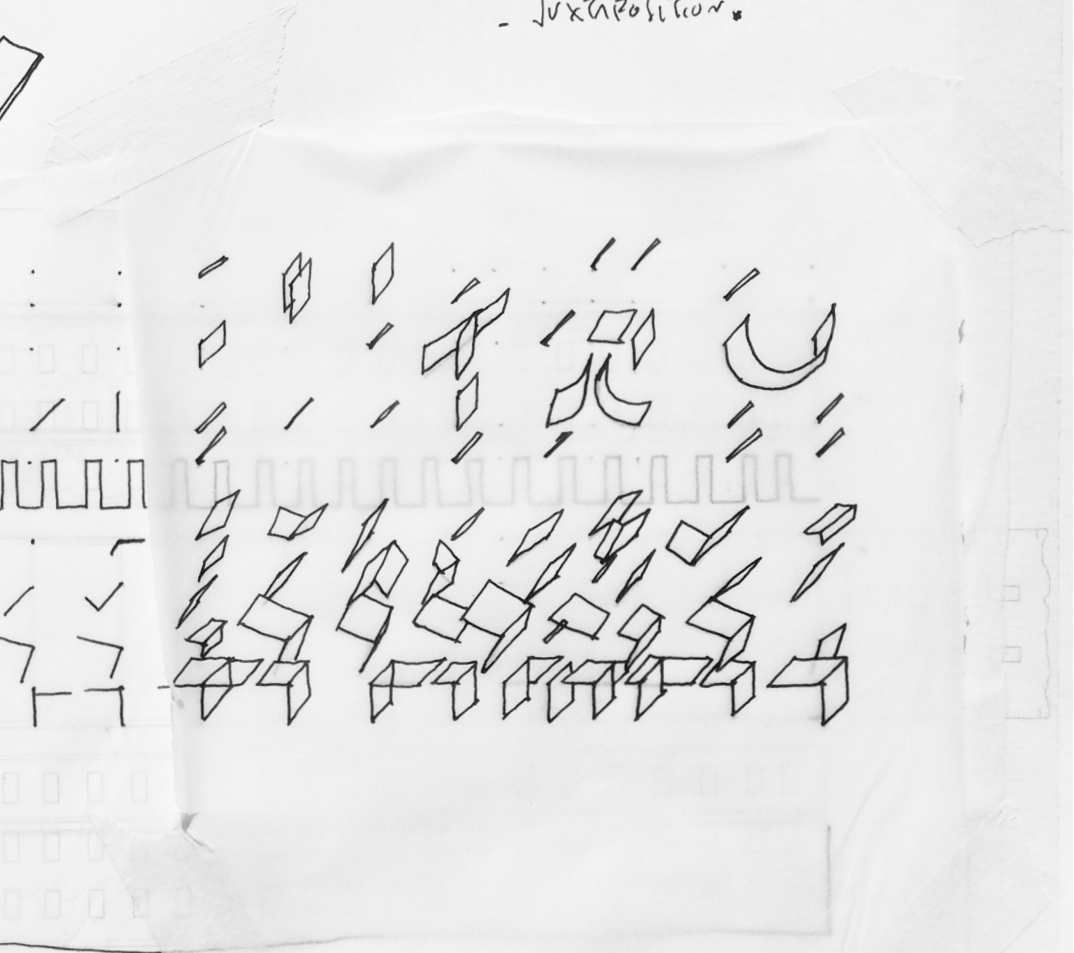 - JUXTAPOSITION.